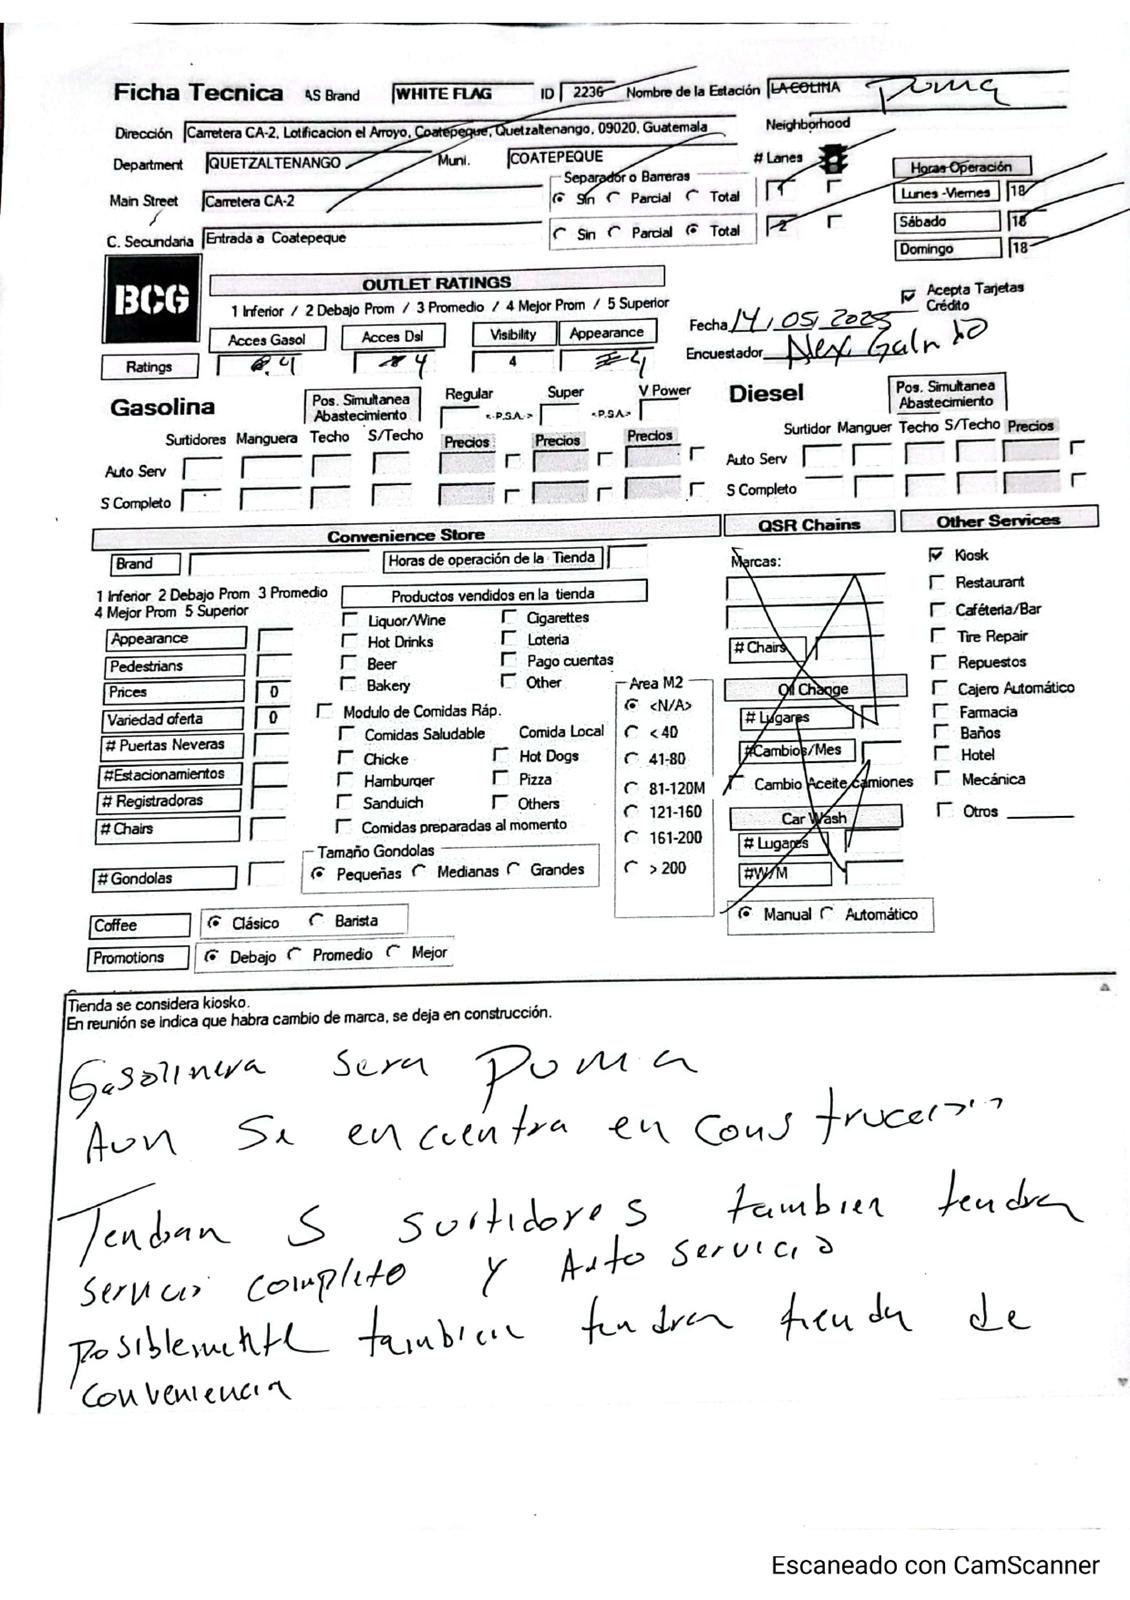 Ficha Tecnica AS Brand WHITE FLAG ID 2236 Nombre de la Estación LA COLINA Puma
Dirección Carretera CA-2, Lotificacion el Arroyo, Coatepeque, Quetzaltenango, 09020, Guatemala Neighborhood
Department QUETZALTENANGO Muni. COATEPEQUE # Lanes
Separador o Barreras Horas Operación
Main Street Carretera CA-2 Sin Parcial Total 1 Lunes -Viernes 18
C. Secundaria Entrada a Coatepeque Sin Parcial Total 2 Sábado 18
Domingo 18
BCG
OUTLET RATINGS
1 Inferior / 2 Debajo Prom / 3 Promedio / 4 Mejor Prom / 5 Superior
Acepta Tarjetas Crédito
Acces Gasol Acces Dsl Visibility Appearance Fecha 14/05/2025
Ratings 4 4 4 4 Encuestador Alex Galindo
Gasolina Pos. Simultanea Abastecimiento Regular <.P.S.A.> Super <.P.S.A.> V Power Diesel Pos. Simultanea Abastecimiento
Surtidores Manguera Techo S/Techo Precios Precios Precios Surtidor Manguer Techo S/Techo Precios
Auto Serv Auto Serv
S Completo S Completo
Convenience Store QSR Chains Other Services
Brand Horas de operación de la Tienda Marcas: Kiosk
1 Inferior 2 Debajo Prom 3 Promedio Productos vendidos en la tienda Restaurant
4 Mejor Prom 5 Superior Liquor/Wine Cigarettes Caféteria/Bar
Appearance Hot Drinks Loteria # Chairs Tire Repair
Pedestrians Beer Pago cuentas Repuestos
Prices 0 Bakery Other Area M2 Oil Change Cajero Automático
Variedad oferta 0 Modulo de Comidas Ráp. <N/A> # Lugares Farmacia
# Puertas Neveras Comidas Saludable Comida Local < 40 Baños
#Estacionamientos Chicke Hot Dogs 41-80 #Cambios/Mes Hotel
# Registradoras Hamburger Pizza 81-120M Cambio Aceite camiones Mecánica
# Chairs Sanduich Others 121-160 Car Wash Otros
Comidas preparadas al momento 161-200 # Lugares
Tamaño Gondolas
# Gondolas Pequeñas Medianas Grandes > 200 #W/M
Coffee Clásico Barista Manual Automático
Promotions Debajo Promedio Mejor
Tienda se considera kiosko.
En reunión se indica que habra cambio de marca, se deja en construcción.
Gasolinera sera Puma
Aun se encuentra en construccion
Tendran 5 surtidores tambien tendra
servicio completo y Auto servicio
posiblemente tambien tendra tienda de
conveniencia
Escaneado con CamScanner